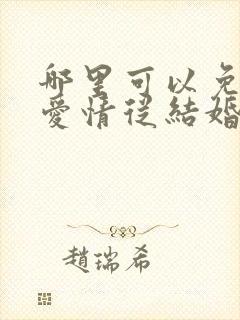 哪里可以免
愛情從結婚
趙瑞希